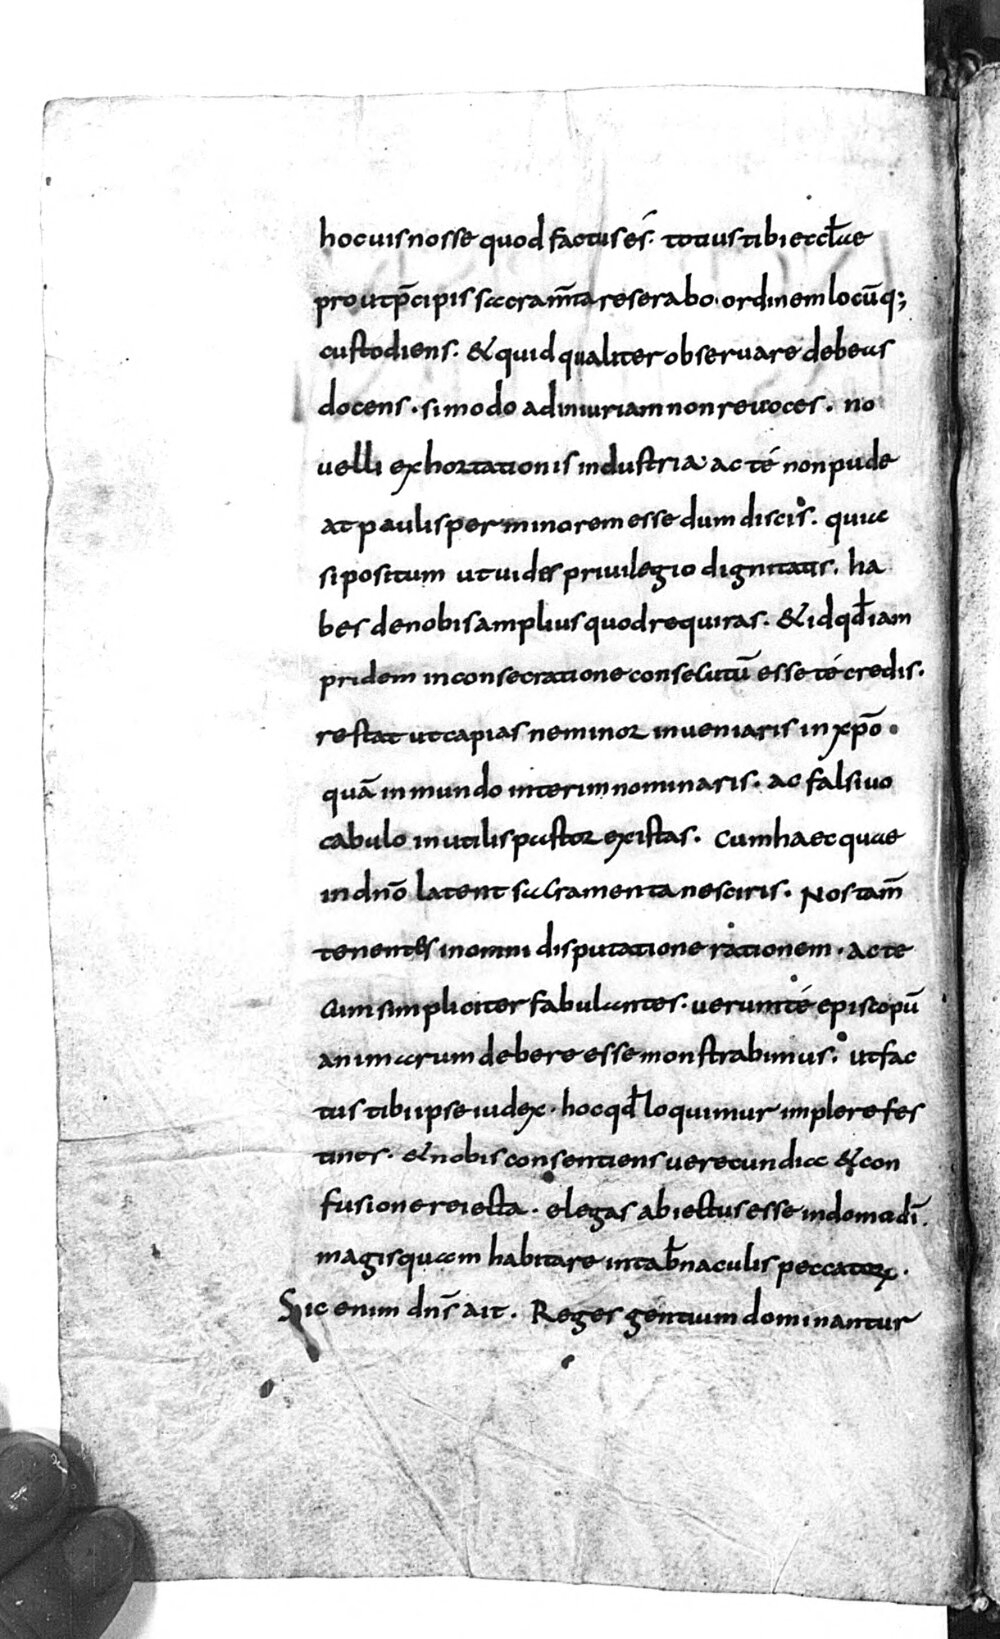 hoc uis nosse quod factus és. totius tibi eccl̄iae
prout p̄cipis sacram̄ta reserabo. ordinem locūq;
custodiens. & quid qualiter obseruare debeas
docens. si modo ad iniuriam non reuoces. no
uelli exhortationis industria. ac té non pude
at paulisper minorem esse dum discis. qui ae
si positum ut uides priuilegio dignitatis. ha
bes de nobis amplius quod requiras. & id qd̄ iam
pridem in consecratione consecutū esse té credis.
restat ut capias ne minor inueniaris in xp̄o.
quā in mundo interim nominaris. ac falsi uo
cabulo inutilis pastor existas. Cum haec quae
in dn̄o latent sacramenta nesciris. Nos tam̄
tenentes in omni disputatione rationem. ac te
cum simpliciter fabulantes. uerum té episcopū
animarum debere esse monstrabimus. ut fac
tus tibi ipse iudex. hoc qd̄ loquimur implere fes
tines. & nobis consentiens uerecundia & con
fusione reiecta. elegas abiectus esse in domo dī.
magis quam habitare in tab̄naculis peccatorꝝ.
Sic enim dn̄s ait. Reges gentium dominantur